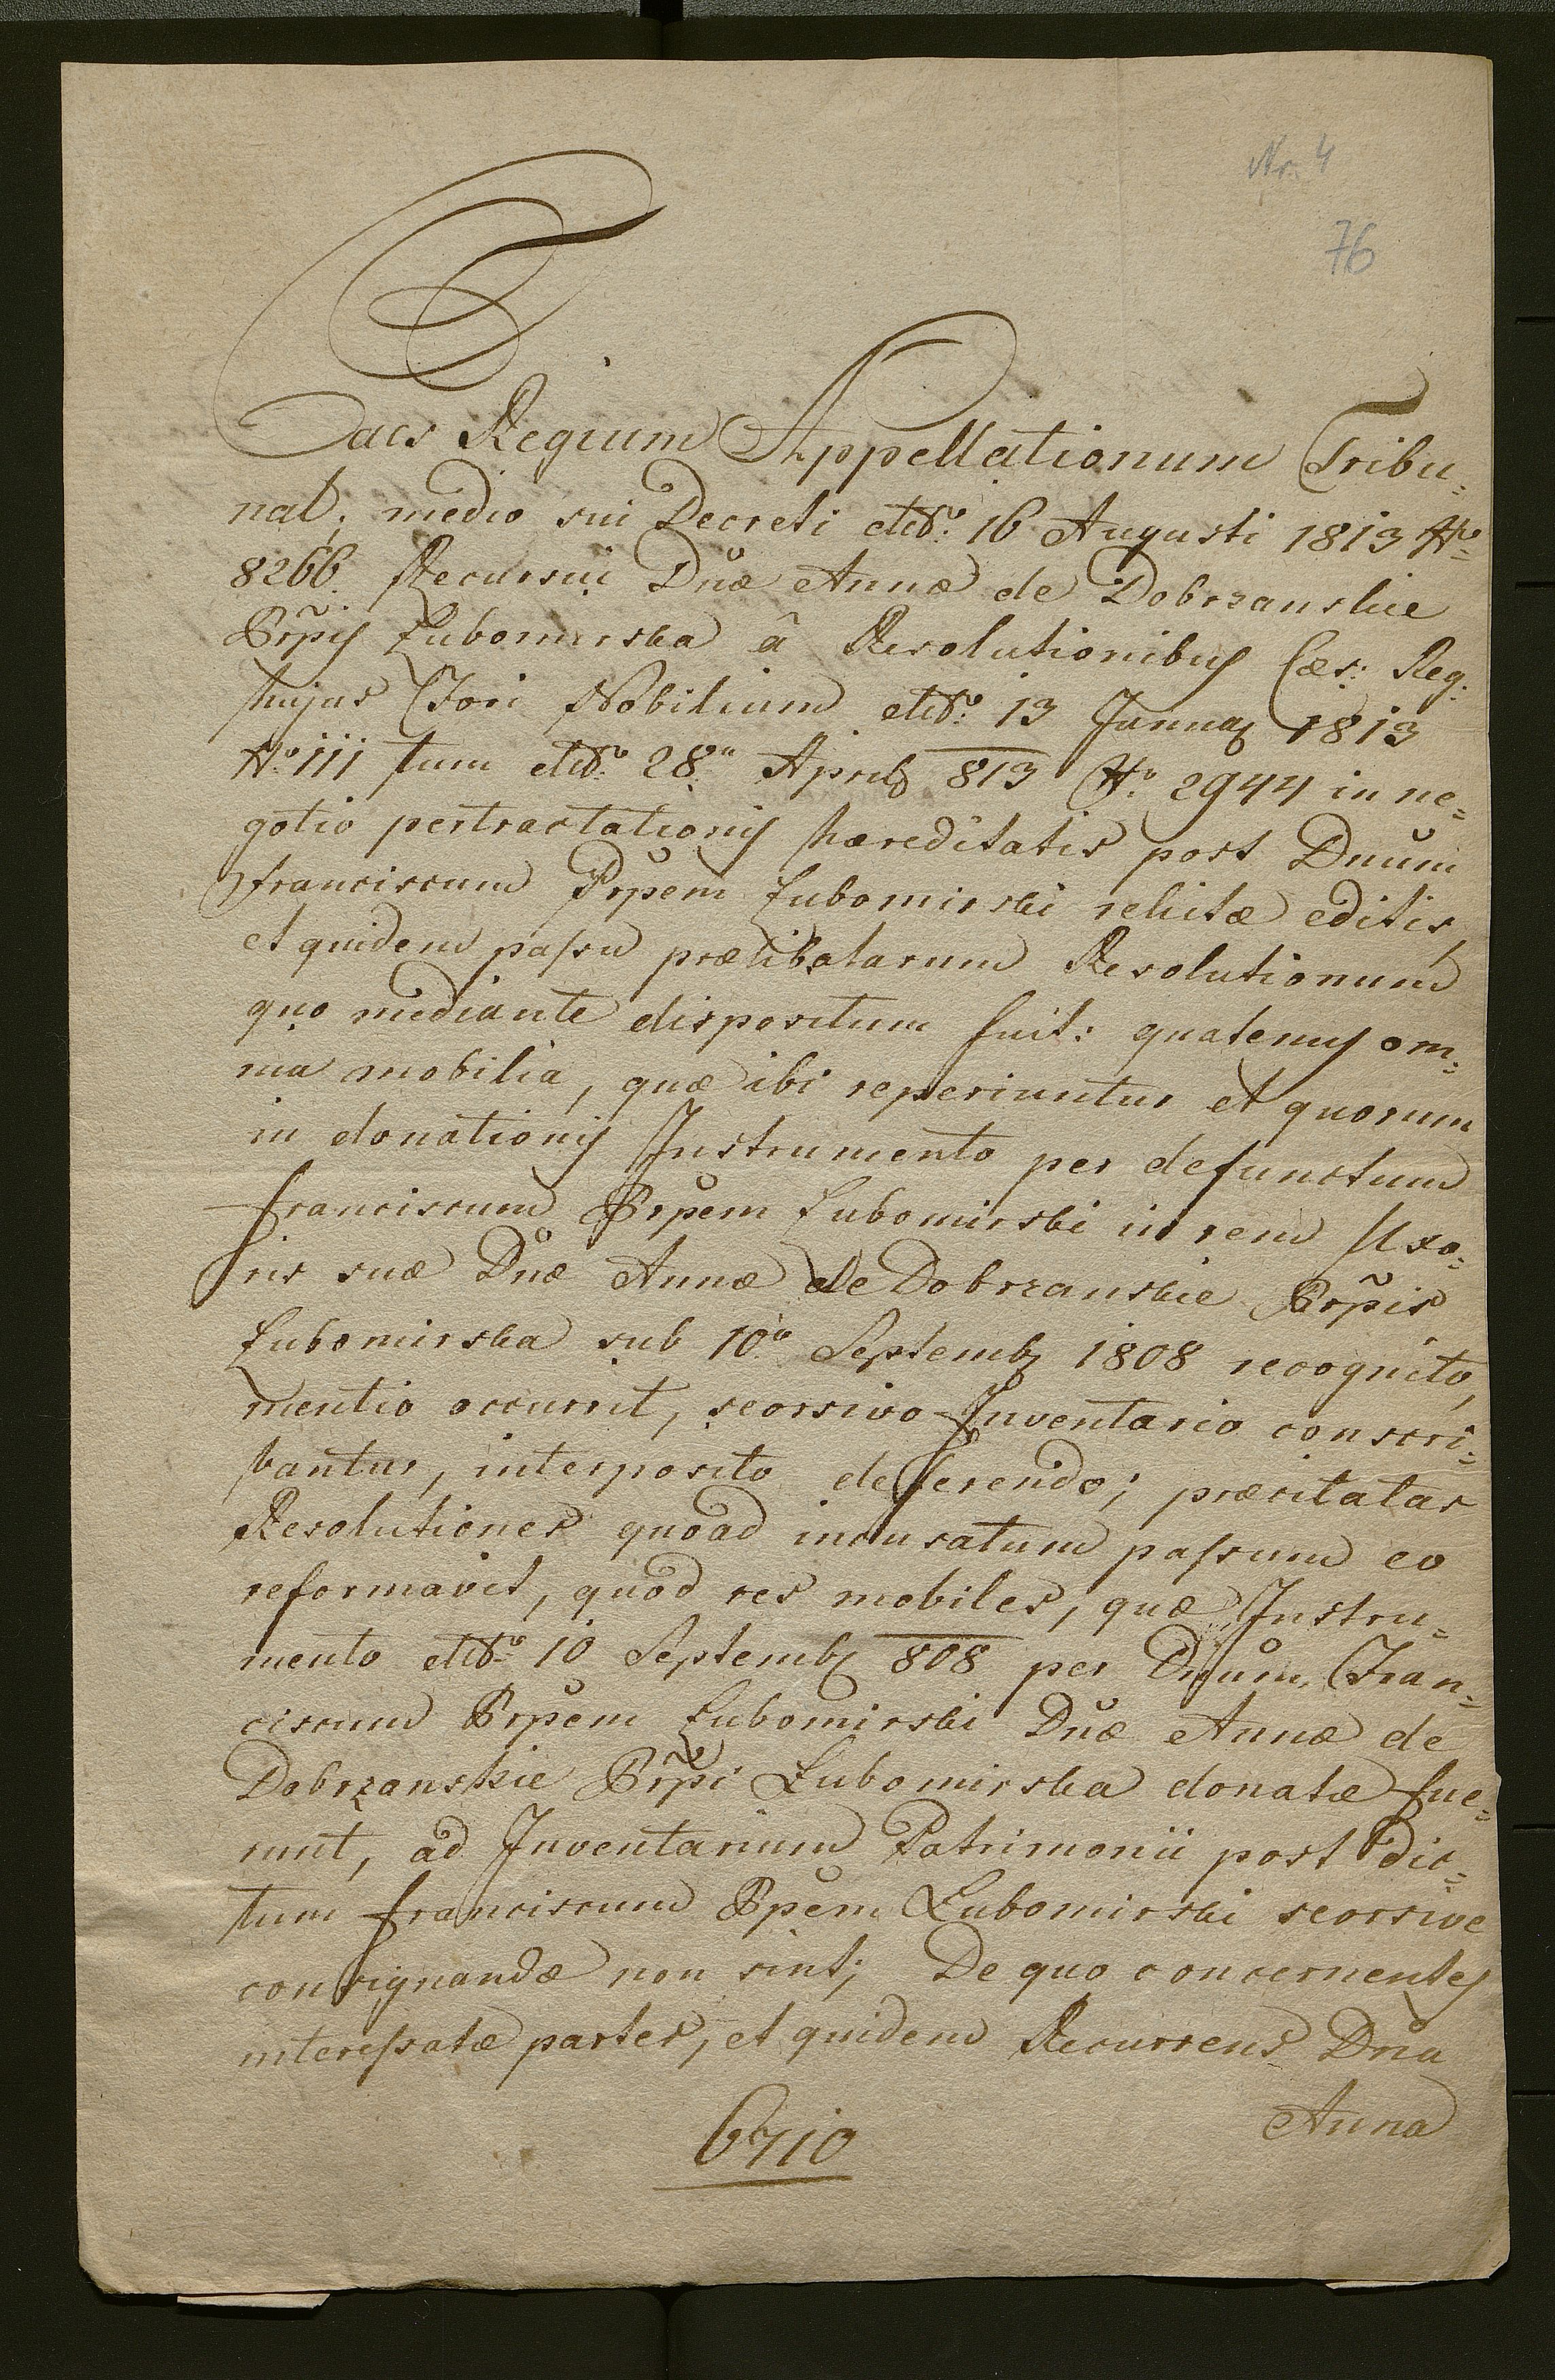 Nr. 4
76
Caes Regium Appellationum Tribu=
nal, medio sui Decreti ddto. 16 Augusti 1813 No
8266. Recursui Dnæ Annæ de Dobrzanskie
Prpis Lubomirska â Resolutionibus Cæs: Reg:
hujus Fori Nobilium ddto. 13 Januar 1813
No 111 tum ddto. 28a Aprilis 813 No. 2944 in ne=
gotio pertractationis hæreditatis post Dnum
Franciscum Prpem Lubomirski relictæ editis,
et quidem passu prælibatarum Resolutionum
quo mediante dispositum fuit: quatenus om=
nia mobilia, quæ ibi reperiuntur et quorum
in donationis Instrumento per defunctum
Franciscum Prpem Lubomirski in rem Uxo=
ris suæ Dnæ Annæ de Dobrzanskie Prpis
Lubomirska sub 10a Septemb 1808 recognito,
mentio occurrit, seorsivo Inventario conscri=
bantur, interposito deferendo; præcitatas
Resolutiones quoad incusatum passum eo
reformavit, quod res mobiles, quæ Instru=
mento ddto. 10 Septemb 808 per Dnum Fran=
ciscum Prpem Lubomirski Dnæ Annæ de
Dobrzanskie Prpi Lubomirska donatæ fue=
runt, ad Inventarium Patrimonii post dic=
tum Franciscum Ppem Lubomirski seorsive
consignandæ non sint; De quo concernentes
interessatæ partes, et quidem Recurrens Dna
Anna
6710